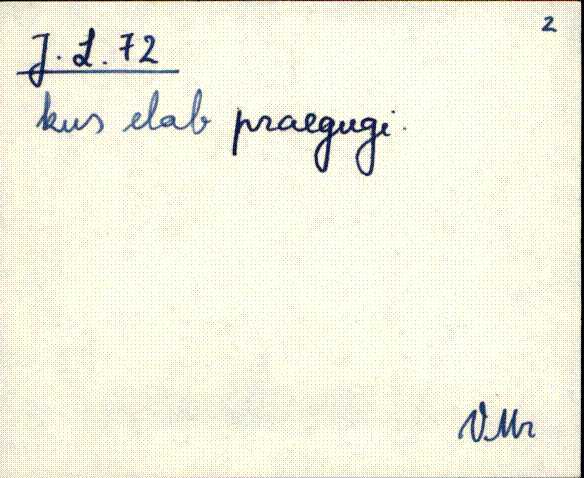 2
J. L. 72
kus elab praegugi.
VMr